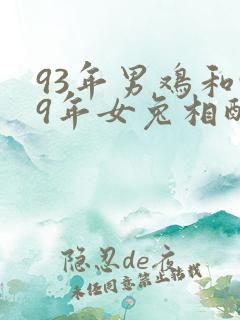 93年男鸡和
9年女兔相配
隐忍de夜
未经同意禁止转载